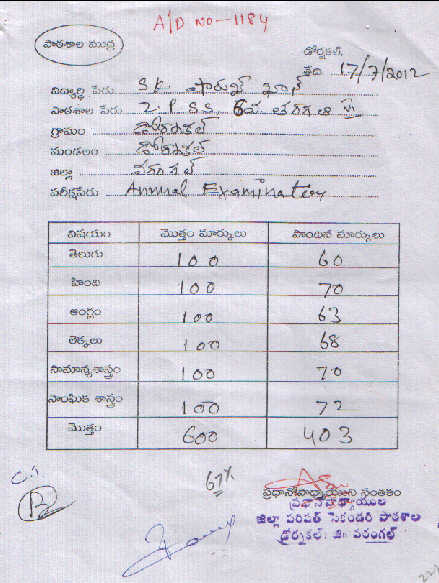 A/D NO-1184
పాఠశాల ముద్ర
డోర్నకల్,
తేది 17/7/2012
విద్యార్థి పేరు SK.
పాఠశాల పేరు Z.P.S.S.
గ్రామం డోర్నకల్
మండలం డోర్నకల్
జిల్లా వరంగల్
పరీక్షపేరు Annual Examination
విషయం మొత్తం మార్కులు పొందిన మార్కులు
తెలుగు 100 60
హింది 100 70
ఆంగ్లం 100 63
లెక్కలు 100 68
సామాన్యశాస్త్రం 100 70
సాంఘిక శాస్త్రం 100 72
మొత్తం 600 403
67%
ప్రధానోపాధ్యాయుని సంతకం
ప్రధానోపాధ్యాయుల
జిల్లా పరిషత్ సెకండరి పాఠశాల
డోర్నకల్. జి॥ వరంగల్